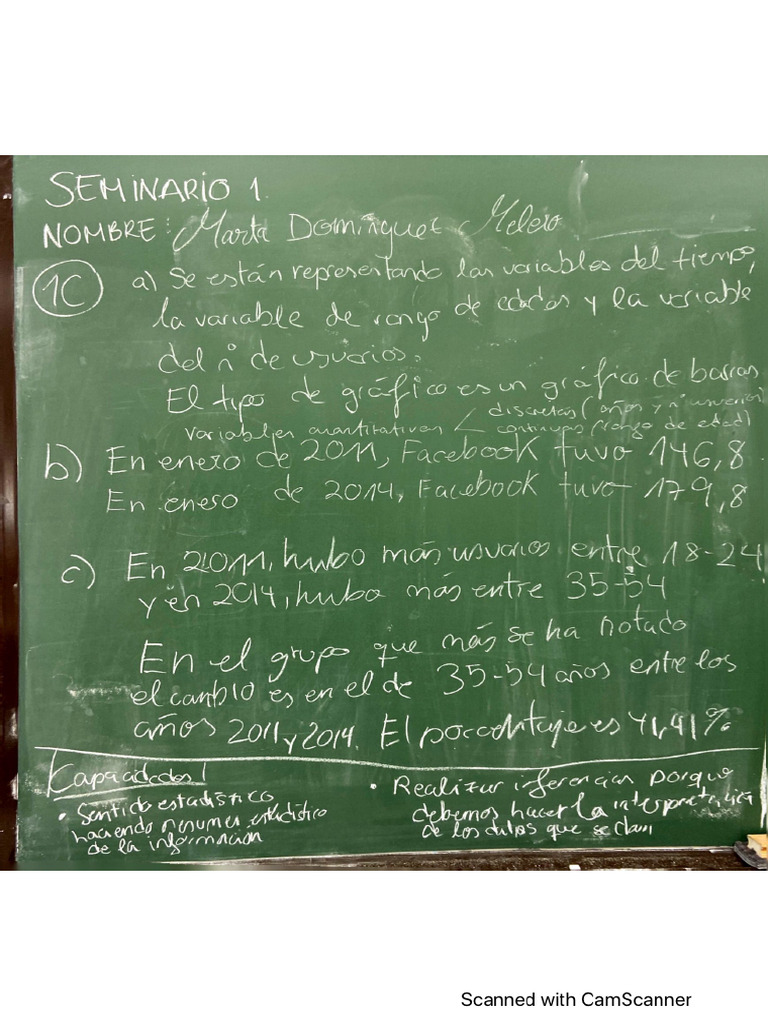 SEMINARIO 1.
NOMBRE: Marta Domínguez Melero
1C a) Se están representando las variables del tiempo,
la variable de rango de edades y la variable
del nº de usuarios.
El tipo de gráfico es un gráfico de barras
variables cuantitativas < discretas (años y nº usuarios)
continuas (rango de edad)
b) En enero de 2011, Facebook tuvo 146,8
En enero de 2014, Facebook tuvo 179,8
c) En 2011, hubo más usuarios entre 18-24
y en 2014, hubo más entre 35-54
En el grupo que más se ha notado
el cambio es en el de 35-54 años entre los
años 2011 y 2014. El porcentaje es 41,41%
Capacidades
• Sentido estadístico
haciendo resumen estadístico
de la información
• Realizar inferencias porque
debemos hacer la interpretación
de los datos que se dan
Scanned with CamScanner